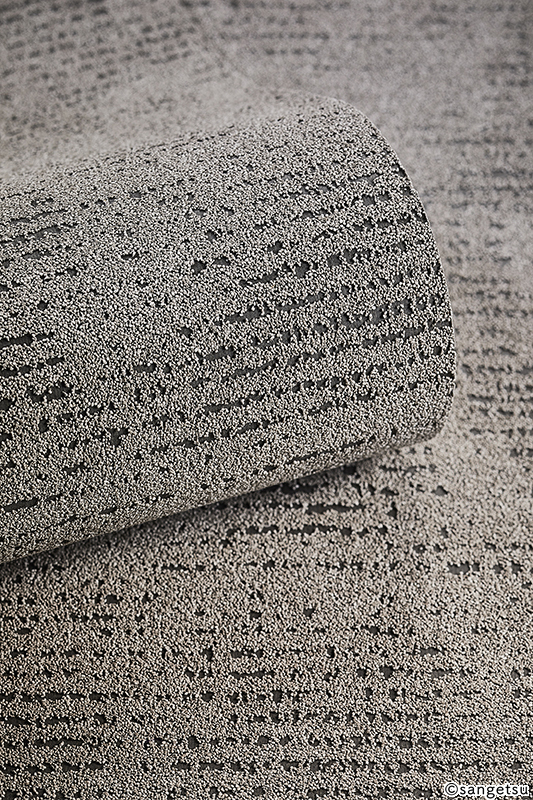 ©sangetsu